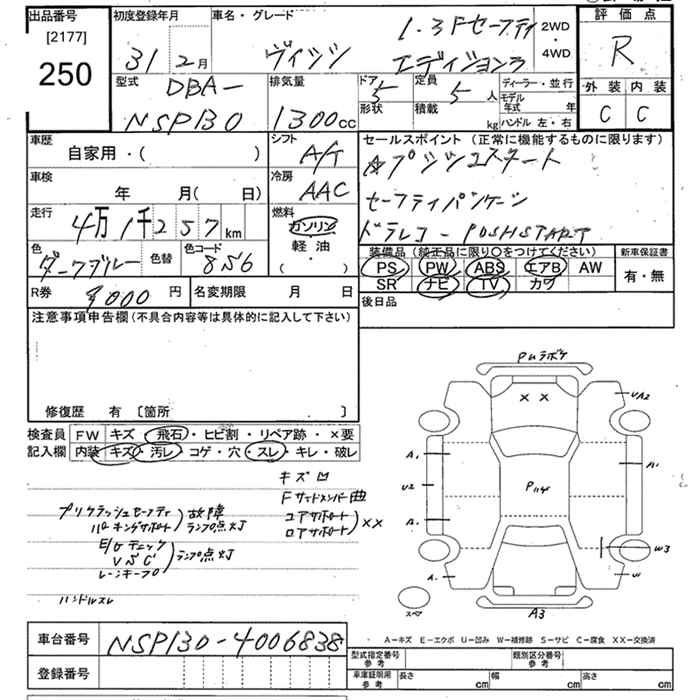 出品番号
[2177]
250
初度登録年月
31年 2月
車名・グレード
ヴィッツ 1.3Fセーフティ
エディションⅢ
2WD
・
4WD
評価点
R
外装 内装
C C
型式
DBA-
NSP130
排気量
1300cc
ドア 5
形状
定員 5人
積載 kg
ディーラー・並行
モデル年式 年
ハンドル 左・右
車歴
自家用・( )
シフト
A/T
セールスポイント (正常に機能するものに限ります)
☆プッシュスタート
セーフティパッケージ
ドラレコ - PUSHSTART
車検
年 月( 日)
冷房
AAC
走行
4万1千257km
燃料
ガソリン
軽油
( ・ )
色
ダークブルー
色替
色コード
8S6
装備品 (純正品に限り○をつけてください)
PS PW ABS エアB AW
SR ナビ TV カワ
新車保証書
有・無
R券
円
名変期限 月 日
後日品
注意事項申告欄(不具合内容等は具体的に記入して下さい)
修復歴 有 [箇所 ]
検査員
記入欄
FW キズ・飛石・ヒビ割・リペア跡・×要
内装 キズ・汚レ・コゲ・穴・スレ・キレ・破レ
キズ凹
Fサイドメンバー曲
コアサポート
ロアサポート
××
プリクラッシュセーフティ
パーキングサポート
故障
ランプ点灯
E/Gチェック
VSC
レーンキープ
ランプ点灯
ハンドルスレ
PUラボケ
× ×
UA2
A1
U2
A1
A1
W3
A1
U1
A3
スペア
車台番号
NSP130-4006838
登録番号
A-キズ E-エクボ U-凹み W-補修跡 S-サビ C-腐食 XX-交換済
型式指定番号
参考
類別区分番号
参考
車庫証明用
参考
長さ cm
幅 cm
高さ cm